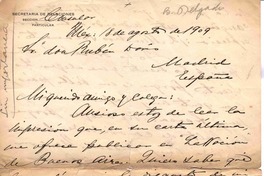 SECRETARIA DE RELACIONES
SECCION
PARTICULAR
B. Delgado
Mex. 18 agosto de 1909
Sr don Rubén Darío
Madrid
España
Mi querido amigo y colega:
Ansioso estoy de leer la
impresion que, en su carta última,
me ofrece publicar en La Nacion
de Buenos Aires. Quiero saber que